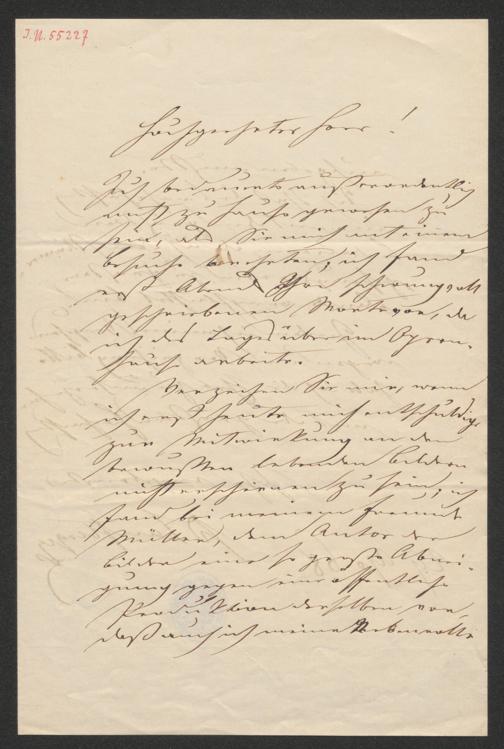 I.N. 55227
Hochgeehrter Herr!
Ich bedauerte außerordentlich
nicht zu Hause gewesen zu
sein, als Sie mich mit einem
Besuche beehrten, ich fand
erst Abend Ihre schwungvoll
geschriebenen Worte vor, da
ich des Tages über im Opern-
hause arbeite.
Verzeihen Sie mir, wenn
ich erst heute mich entschuldige
zur Mitwirkung an den
bewußten lebenden Bildern
nicht erschienen zu sein, ich
fand bei meinem Freunde
Müller, dem Autor der
Bilder eine so große Abnei-
gung gegen eine öffentliche
Produktion derselben vor,
daß auch ich meine Nebenrolle